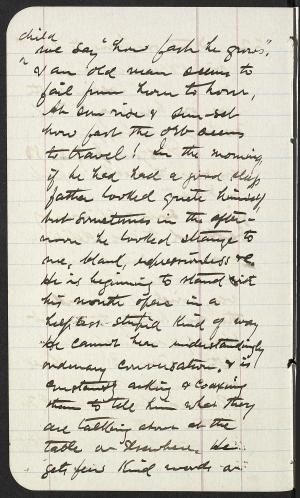 child
we say "how fast he grows".
& an old man seems to
fail from hour to hour,
At sun rise & sun-set
how fast the orb seems
to travel! In the morning
if he had had a good sleep
father looked quite himself
but sometimes in the after-
noon he looked strange to
me, blank, expressionless &
He is beginning to stand with
his mouth open in a
helpless stupid kind of way
He cannot hear understandingly
ordinary conversation, & is
constantly asking & coaxing
them to tell him what they
are talking about at the
table or elsewhere. He
gets few kind words or